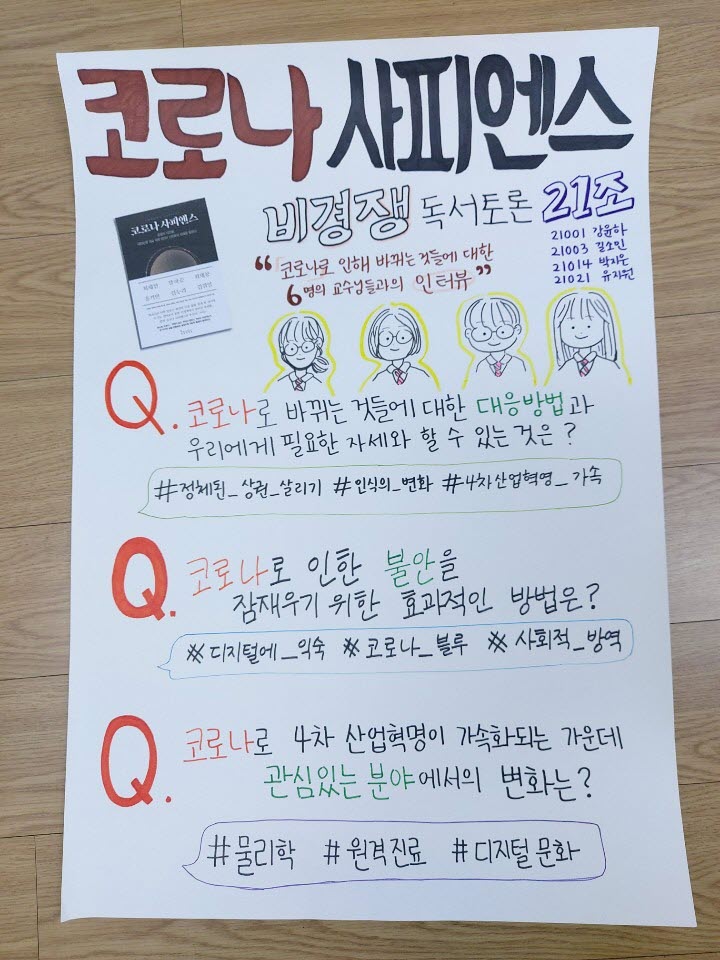 코로나 사피엔스
비경쟁 독서토론 21조
21001 강윤하
21003 길소민
21014 박지윤
21021 유지원
코로나 사피엔스
"코로나로 인해 바뀌는 것들에 대한
6명의 교수님들과의 인터뷰"
Q. 코로나로 바뀌는 것들에 대한 대응방법과
우리에게 필요한 자세와 할 수 있는 것은?
#정체된_상권_살리기 #인식의_변화 #4차산업혁명_가속
Q. 코로나로 인한 불안을
잠재우기 위한 효과적인 방법은?
#디지털에_익숙 #코로나_블루 #사회적_방역
Q. 코로나로 4차 산업혁명이 가속화되는 가운데
관심있는 분야에서의 변화는?
#물리학 #원격진료 #디지털 문화